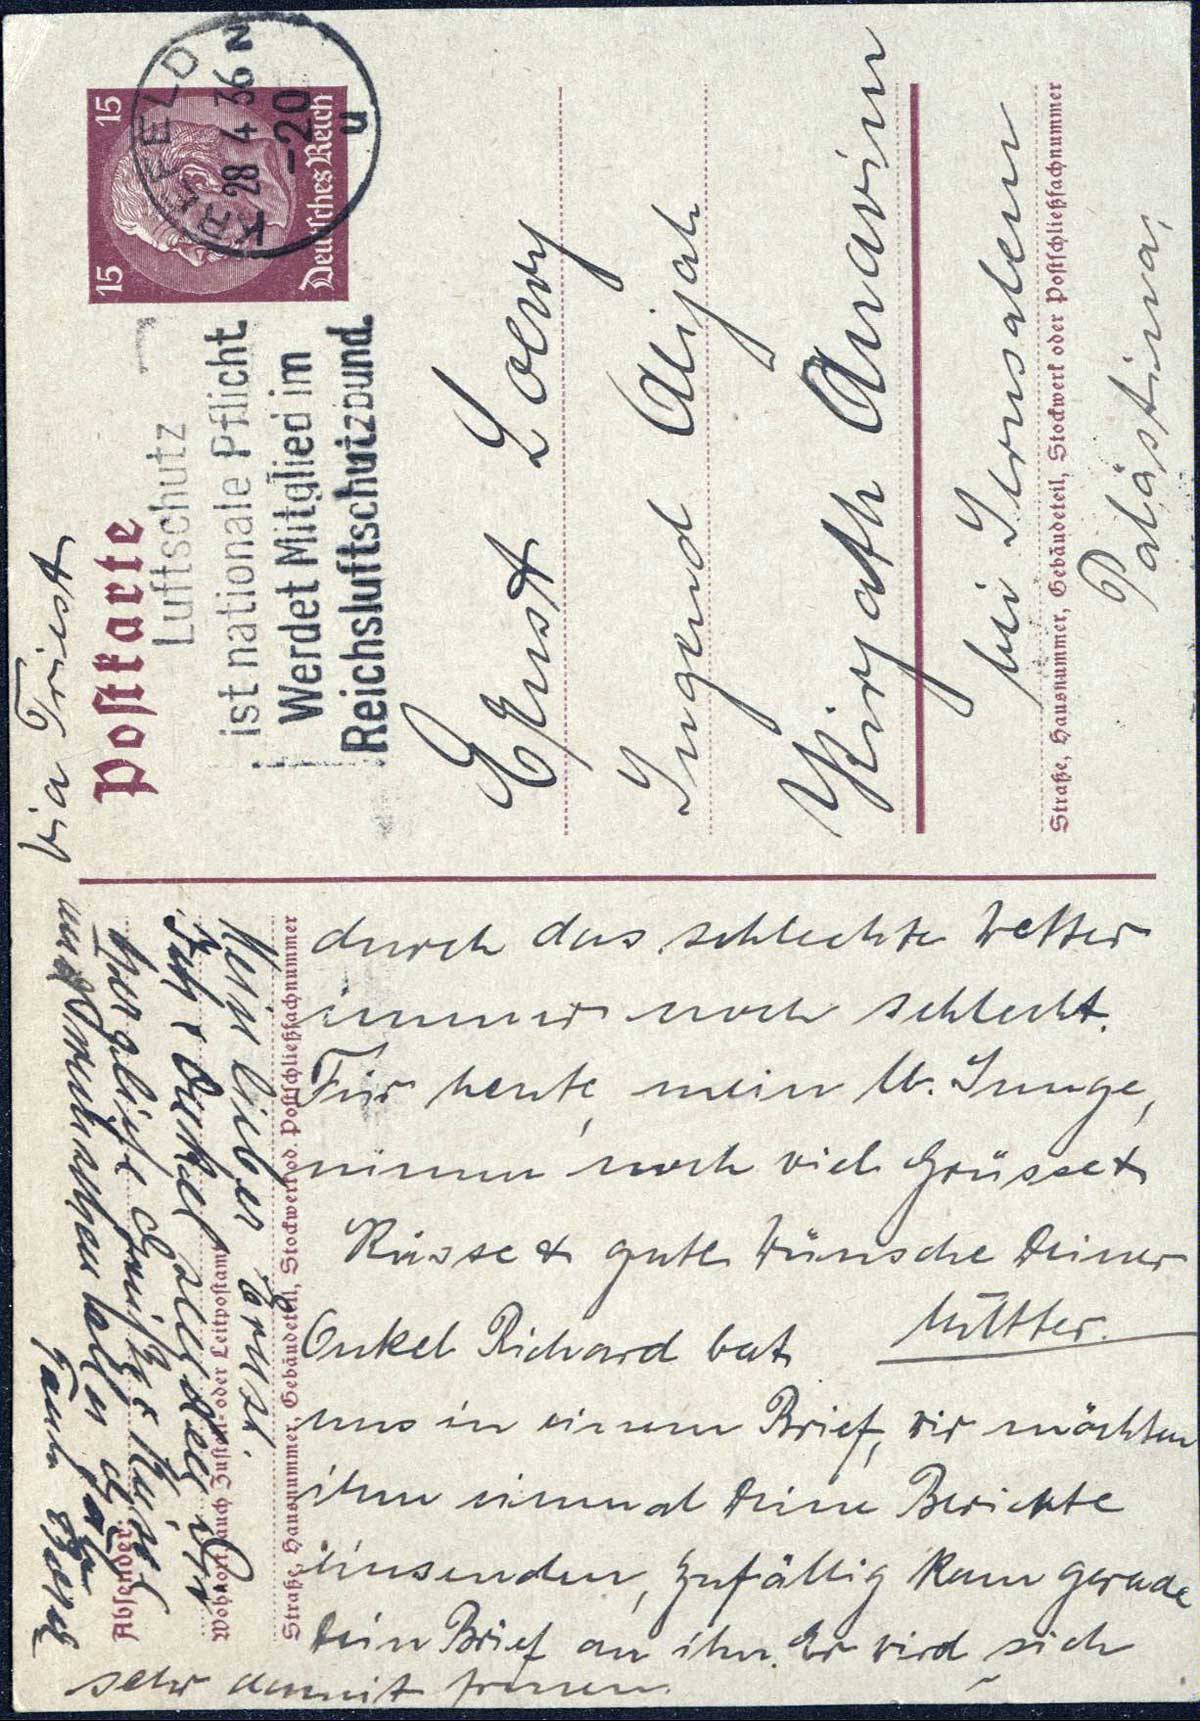 via Triest
Postkarte
15 15
Deutsches Reich
KREFELD
28 4 36 N
-20
u
Luftschutz
ist nationale Pflicht
Werdet Mitglied im
Reichsluftschutzbund.
Ernst Loewy
Jugend Alijah
Kirjath Anavim
bei Jerusalem
Straße, Hausnummer, Gebäudeteil, Stockwerk oder Postschließfachnummer
Palästina.
durch das schlechte Wetter
immer noch schlecht.
Für heute, mein lb. Junge,
nimm noch viel Grüsse &
Küsse & gute Wünsche Deiner
Mutter.
Onkel Richard bat
uns in einem Brief, wir möchten
ihm einmal Deine Berichte
einsenden, zufällig kam gerade
Dein Brief an ihn. Er wird sich
sehr damit freuen.
Absender:
Wohnort, auch Zustell- oder Leitpostamt
Straße, Hausnummer, Gebäudeteil, Stockwerk od. Postschließfachnummer
Mein lieber Ernst!
herzliche Grüße & Küsse